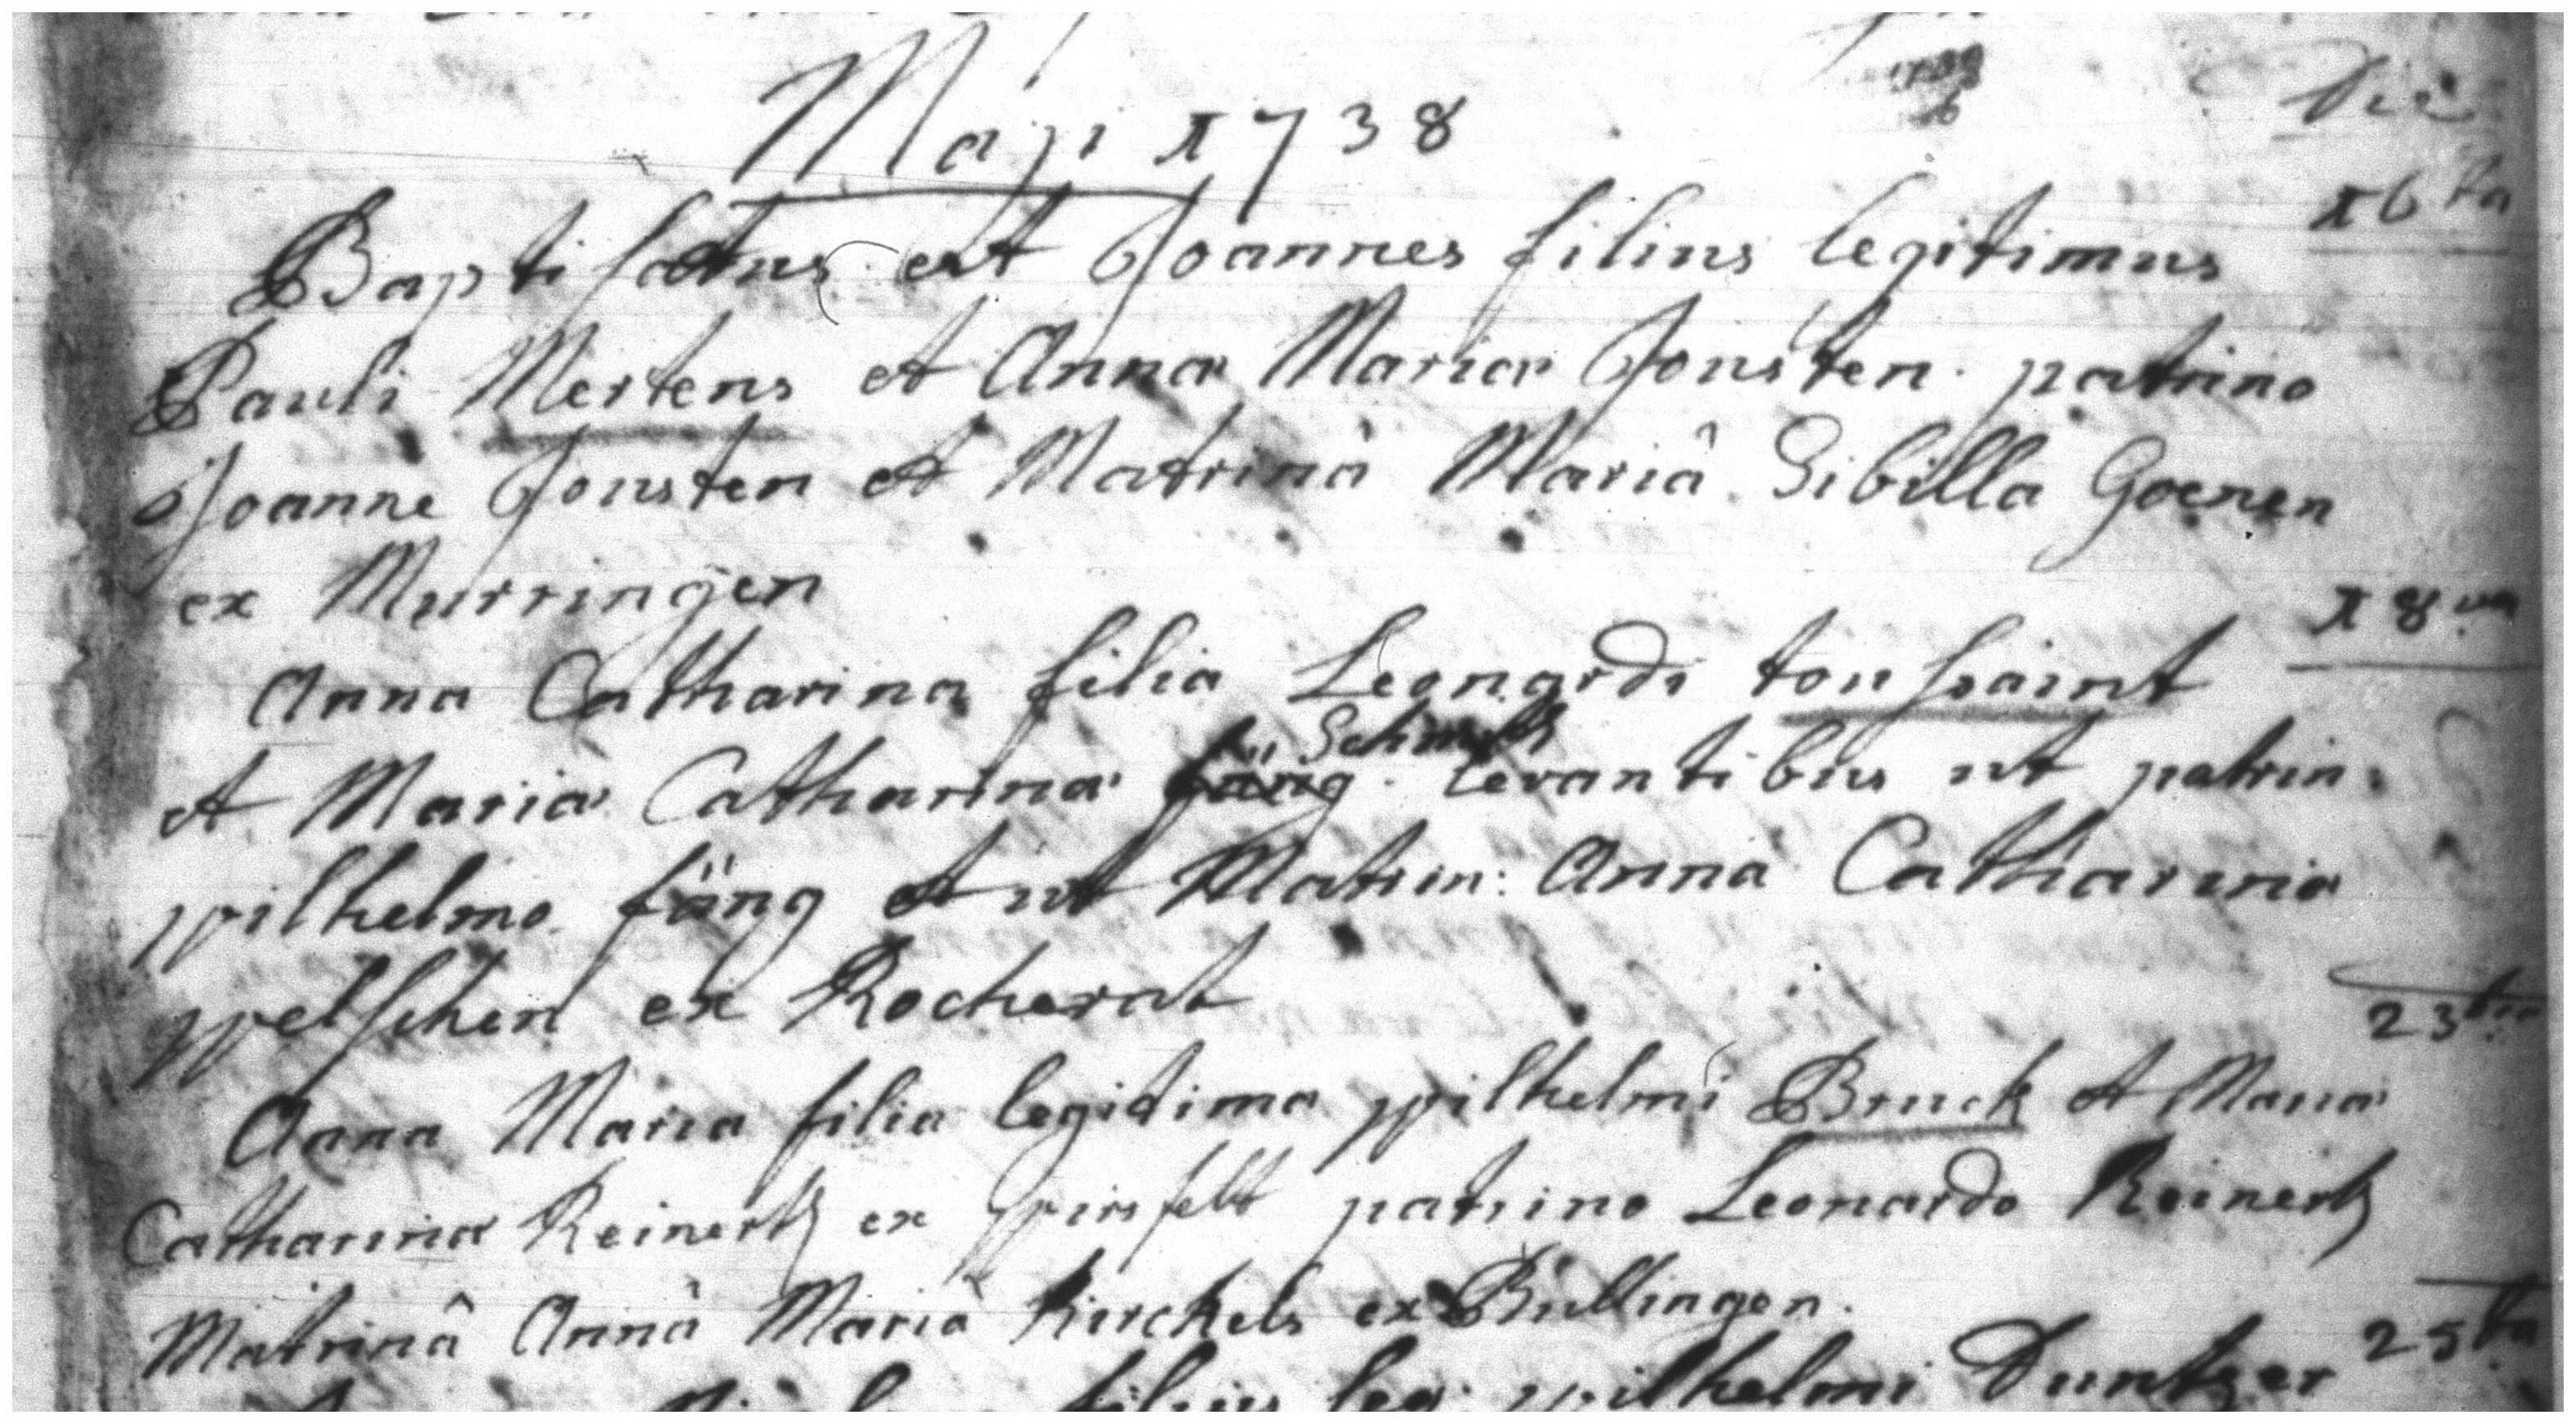 Maji 1738
Die
16ta
Baptisatus est Joannes filius legitimus
Pauli Mertens et Anna Maria Jousten. patrino
Joanne Jousten et Matrinâ Mariâ Sibilla Goenen
ex Murringen
18va
Anna Catharina filia Leonardi toussaint
Schmitz
et Maria Catharina fäng. levantibus ut patrin:
wilhelmo fäng et ut Matrin: Anna Catharina
welschen ex Rocherat
23tia
Anna Maria filia legitima wilhelmi Bruck et Maria
Catharina Reinertz ex wirsfelt patrino Leonardo Reinertz
Matrinâ Annâ Mariâ Kirchels ex Bullingen.
25ta
filius leg: wilhelmi Duntzer